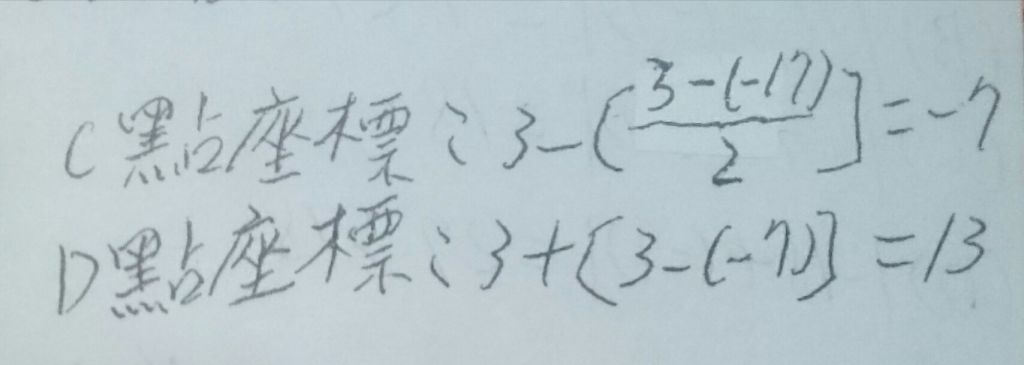 C點座標：3-[\frac{3-(-17)}{2}]=-7
D點座標：3+[3-(-7)]=13